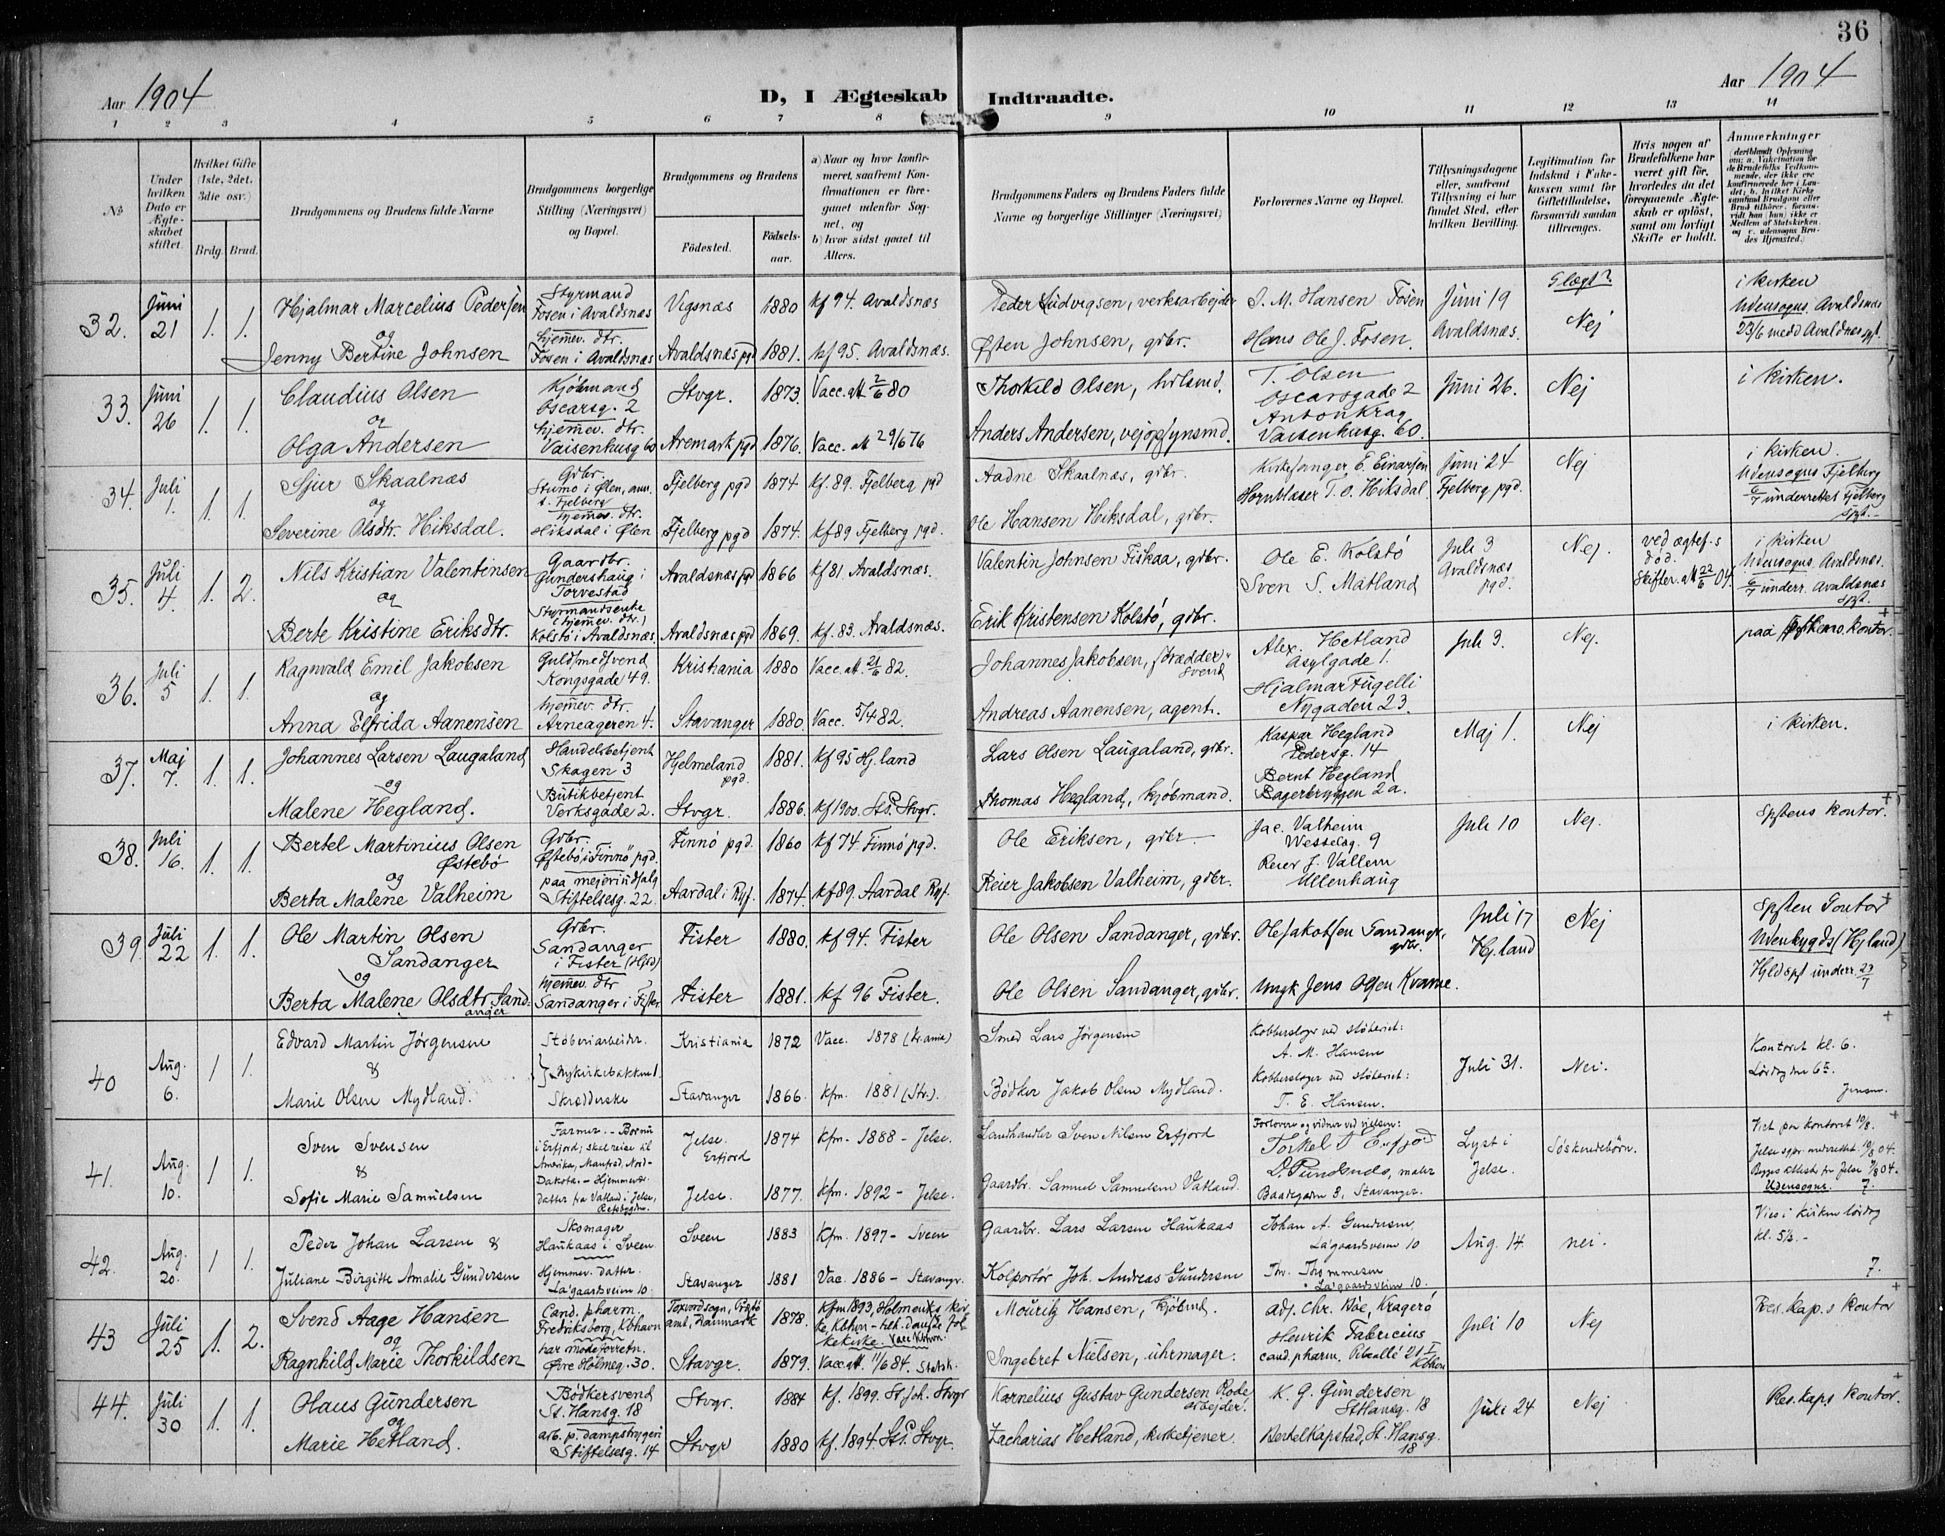 36
Aar 1904
D, I Ægteskab Indtraadte.
Aar 1904
1 2 3 4 5 6 7 8 9 10 11 12 13 14
No
Under hvilken Dato er Ægteskabet stiftet.
Hvilket Gifte (1ste, 2det, 3die osv.)
Brdg. Brud.
Brudgommens og Brudens fulde Navne
Brudgommens borgerlige Stilling (Næringsvei) og Bopæl.
Brudgommens og Brudens
Födested. Födselsaar.
a) Naar og hvor konfirmeret, saafremt Konfirmationen er foregaaet udenfor Sognet, og
b) hvor sidst gaaet til Alters.
Brudgommens Faders og Brudens Faders fulde Navne og borgerlige Stillinger (Næringsvei)
Forlovernes Navne og Bopæl.
Tillysningsdagene eller, saafremt Tillysning ei har fundet Sted, efter hvilken Bevilling.
Legitimation for Indskud i Enkekassen samt for Giftetilladelse, forsaavidt saadan tiltrænges.
Hvis nogen af Brudefolkene har været gift før, hvorledes da det foregaaende Ægteskab er opløst, samt om lovligt Skifte er holdt.
Anmerkninger
32. Juni 21 1. 1.
Hjalmar Marcelius Pedersen
og
Jenny Bertine Johnsen
Styrmand
Fosen i Avaldsnæs
hjemmev. dtr.
Fosen i Avaldsnæs
Vigsnæs 1880 kf 94. Avaldsnæs
Avaldsnæs pgd 1881. kf 95. Avaldsnæs.
Peder Ludvigsen, verksarbejder
Østen Johnsen, gdbr.
J. M. Hansen Fosen
Hans Ole J. Fosen.
Juni 19
Avaldsnæs.
Slægt?
Nej
i kirken
Udensogns Avaldsnæs
23/6 medd Avaldsnæs spt.
33. Juni 26 1. 1.
Claudius Olsen
og
Olga Andersen
Kjøbmand
Oscarsg. 2
hjemmev. dtr.
Vaisenhusg 60
Stvgr. 1873. Vacc. att 2/6 80
Aremark pgd 1876. Vacc. att 29/6 76
Thorkild Olsen,
Anders Andersen, vejopsynsmd.
T. Olsen
Oscarsgade 2
Anton Krag
Vaisenhusg. 60.
Juni 26.
Nej
i kirken.
34. Juli 1. 1. 1.
Sjur Skaalnæs
og
Severine Olsdtr. Hiksdal.
Gdbr.
Stumo i Ølen, ann.
t. Fjelberg
hjemev. dtr.
Hiksdal i Ølen
Fjelberg pgd 1874 kf. 89. Fjelberg pgd
Fjelberg pgd 1874. kf 89 Fjelberg pgd.
Aadne Skaalnæs, gdbr.
Ole Hansen Hiksdal, gdbr.
Kirkesanger E. Einarsen
Hornblaser T. O. Hiksdal
Juni 24
Fjelberg pgd.
Nej
i kirken.
Udensogns Fjelberg
6/7 underrettet Fjelberg
spt.
35. Juli 4. 1. 2.
Nils Kristian Valentinsen
og
Berte Kristine Eriksdtr.
Gaardbr.
Gundershaug i
Torvestad
Styrmandsenke
(hjemev. dtr.)
Kolstø i Avaldsnæs.
Avaldsnæs pgd 1866 kf 81 Avaldsnæs.
Avaldsnæs pgd 1869. kf. 83. Avaldsnæs.
Valentin Johnsen Fiskaa, gdbr.
Erik Kristensen Kolstø, gdbr.
Ole E. Kolstø
Sven S. Matland
Juli 3
Avaldsnæs
pgd.
Nej.
ved ægtef.s
død.
Skifter. att 22/6 04.
i kirken
Udensogns Avaldsnæs.
6/7 underr. Avaldsnæs
spt.
36. Juli 5 1. 1.
Ragnvald Emil Jakobsen
og
Anna Elfrida Aanensen
Guldsmedsvend
Kongsgade 49.
hjemev. dtr.
Arneageren 4.
Kristiania 1880 Vacc. att. 21/6 82.
Stavanger 1880. Vacc. 5/4 82.
Johannes Jakobsen, skrædder-
svend
Andreas Aanensen, agent.
Alex. Hetland
Asylgade 1.
Hjalmar Fugelli
Nygaden 23.
Juli 3.
Nej.
paa kontor.
37. Maj 7. 1. 1.
Johannes Larsen Laugaland
og
Malene Hegland.
Handelsbetjent
Skagen 3
Butikbetjent
Verksgade 2.
Hjelmeland pgd. 1881. kf 95 Hj.land
Stvgr. 1886. kf 1900. St.P. Stvgr.
Lars Olsen Laugaland, gdbr.
Thomas Hegland, kjøbmand.
Kaspar Hegland
Pedersg. 14
Bernt Hegland
Bagerbryggen 2a.
Maj 1.
Nej
i kirken.
38. Juli 16. 1. 1.
Bertel Martinius Olsen
Østebø
og
Berta Malene Valheim
Gdbr.
Østebø i Finnø pgd.
paa mejeriudsalg
Stiftelsesg. 22.
Finnø pgd. 1860 kf 74. Finnø pgd.
Aardal i Ryf. 1874. kf 89. Aardal Ryf.
Ole Eriksen, gdbr.
Reier Jakobsen Valheim, gdbr.
Jac. Valheim
Wesselsg. 9
Reier J. Vallem
Ullenhaug
Juli 10
Nej.
Spstens kontor.
39. Juli 22 1. 1.
Ole Martin Olsen
Sandanger
og
Berta Malene Olsdtr. Sand-
anger
Gdbr.
Sandanger
i Fister (Hjld)
hjemmev. dtr
Sandanger i Fister
Fister 1880. kf 94. Fister
Fister 1881. kf 96 Fister.
Ole Olsen Sandanger, gdbr.
Ole Olsen Sandanger, gdbr.
Ole Jakobsen Sandangr,
gdbr.
Ungk Jens Olsen Kvame.
Juli 17
Hj.land
Nej
Spsten Contor
Udenbygds (Hjland)
Hjld spt underr. 23/7
40 Aug. 6. 1 1.
Edvard Martin Jørgensen
&
Marie Olsen Mydland.
Støberiarbeider.
Nykirkebakken 1
Skrædderske
Kristiania 1872 Vacc. 1878 (Kr.ania)
Stavanger 1866. Kfm. 1881 (Str.).
Smed Lars Jørgensen
Bødker Jakob Olsen Mydland.
Kobberslager ved støberiet:
A. M. Hansen
Kobberslager ved støberiet:
T. E. Hansen.
Juli 31.
Nei.
Kontoret kl. 6.
Lørdag
Jensen.
41. Aug. 10. 1 1.
Sven Svensen
&
Sofie Marie Samuelsen
Farmer. - Bornu
i Erfjord; skal reise til
Amerika, Manfred, Nord-
Dakota. - Hjemmevær.
datter fra Vatland i Jelse,
Jelse. Erfjord 1874 Kfm. 1888 - Jelse.
Jelse. 1877. Kfm. 1892 - Jelse.
Landhandler Sven Nilsen Erfjord
Gaardbr. Samuel Samuelsen Vatland.
Forlovere og vidner ved vielsen:
Torkel T Erfjord
D. Tunlands, maler
Baadegaden 3, Stavanger.
Lyst i
Jelse.
Søskendebørn.
Viet paa kontoret 10/8.
Jelse sgpr. underrettet 10/8 04.
Udensogns. 7.
42. Aug. 20. 1 1.
Peder Johan Larsen &
Juliane Birgitte Amalie Gundersen
Skomager
Haukaas i Sveen
Hjemmev. datter.
Lagaardsveien 10.
Sveen 1883 Kfm. 1897 - Sveen
Stavanger 1881 Vac. 1886 - Stavangr.
Gaardbr. Lars Larsen Haukaas
Kolportør Joh. Andreas Gundersen
Johan A. Gundersen
Lagaardsveien 10
Tommesen
Lagaardsveien 10.
Aug. 14.
nei.
Vies i kirken lørdag
kl. 5½.-
7.
43 Juli 25 1. 2.
Svend Aage Hansen
og
Ragnhild Marie Thorkildsen
Cand. pharm.
Fredriksberg, Kbhavn
har modeforretn.
Øvre Holmeg. 30.
amt, Danmark 1878.
Kfm 1893, Holmenks kir-
ke, Kbhvn - hlt. danske fol-
kekirke. Vacc Kbhvn.
Stavgr. 1879. Vacc att. 11/6 84. Statsk.
Mouritz Hansen, kjøbmd.
Ingebret Nielsen, uhrmager.
adj. Chr. Bøe, Kragerø
Henrik Fabricius
cand. pharm. Pileallé 21 I
Kbhvn
Juli 10
Nej
Res. kap.s kontor
44. Juli 30 1. 1.
Olaus Gundersen
og
Marie Hetland.
Bødkersvend
St. Hansg. 18
arb. p. dampstrygeri
Stiftelsesg. 14
Stvgr. 1884 kf. 1899. St. Joh. Stvgr
Stvgr 1880 kf. 1894. St.P. Stvgr.
Karnelius Gustav Gundersen
arbejder.
Zacharias Hetland, kirketjener.
K. G. Gundersen
St Hansg. 18
Bertel Kapstad, St. Hansg.
18
Juli 24
Nej
Res. kaps kontor.